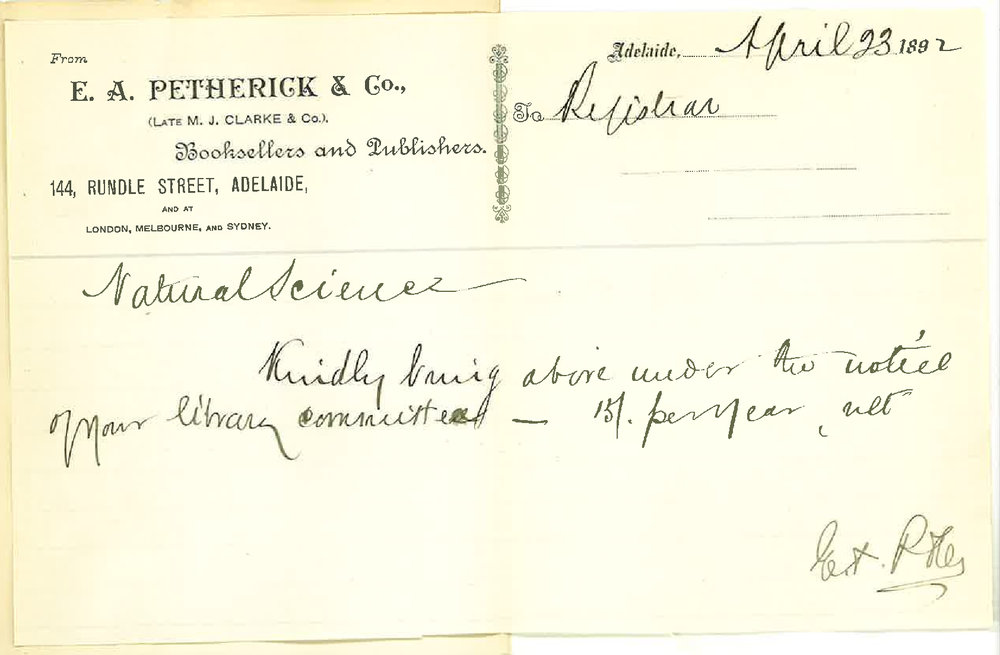 From
E. A. PETHERICK & Co.,
(LATE M. J. CLARKE & Co.),
Booksellers and Publishers.
144, RUNDLE STREET, ADELAIDE,
AND AT
LONDON, MELBOURNE, AND SYDNEY.
Adelaide, April 23 1892
To Registrar
Natural Science
Kindly bring above under the notice
of your library committee — 15/. per year, net